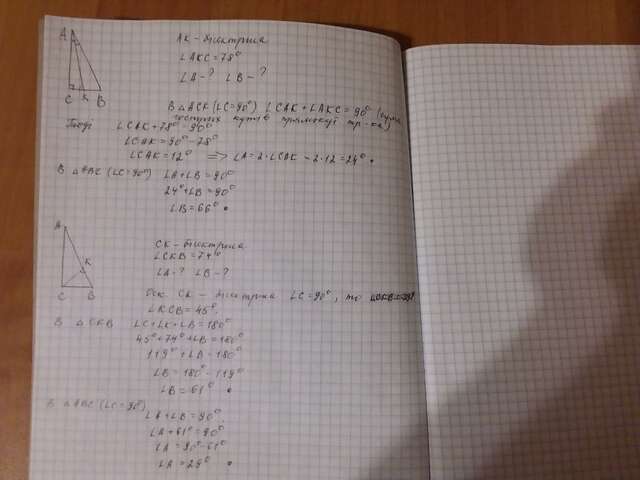 A
C K B
AK - бісектриса
∠AKC = 78°
∠A - ? ∠B - ?
В △ACK (∠C=90°) ∠CAK + ∠AKC = 90° (сума
гострих кутів прямокут. тр-ка)
Тоді ∠CAK + 78° = 90°
∠CAK = 90° - 78°
∠CAK = 12° ⇒ ∠A = 2·∠CAK = 2·12 = 24°.
В △ABC (∠C=90°) ∠A + ∠B = 90°
24° + ∠B = 90°
∠B = 66°.
A
K
C B
CK - бісектриса
∠CKB = 74°
∠A - ? ∠B - ?
Оск. CK - бісектриса ∠C = 90°, то
∠KCB = 45°.
В △CKB ∠C + ∠K + ∠B = 180°
45° + 74° + ∠B = 180°
119° + ∠B = 180°
∠B = 180° - 119°
∠B = 61°.
В △ABC (∠C=90°)
∠A + ∠B = 90°
∠A + 61° = 90°
∠A = 90° - 61°
∠A = 29°.